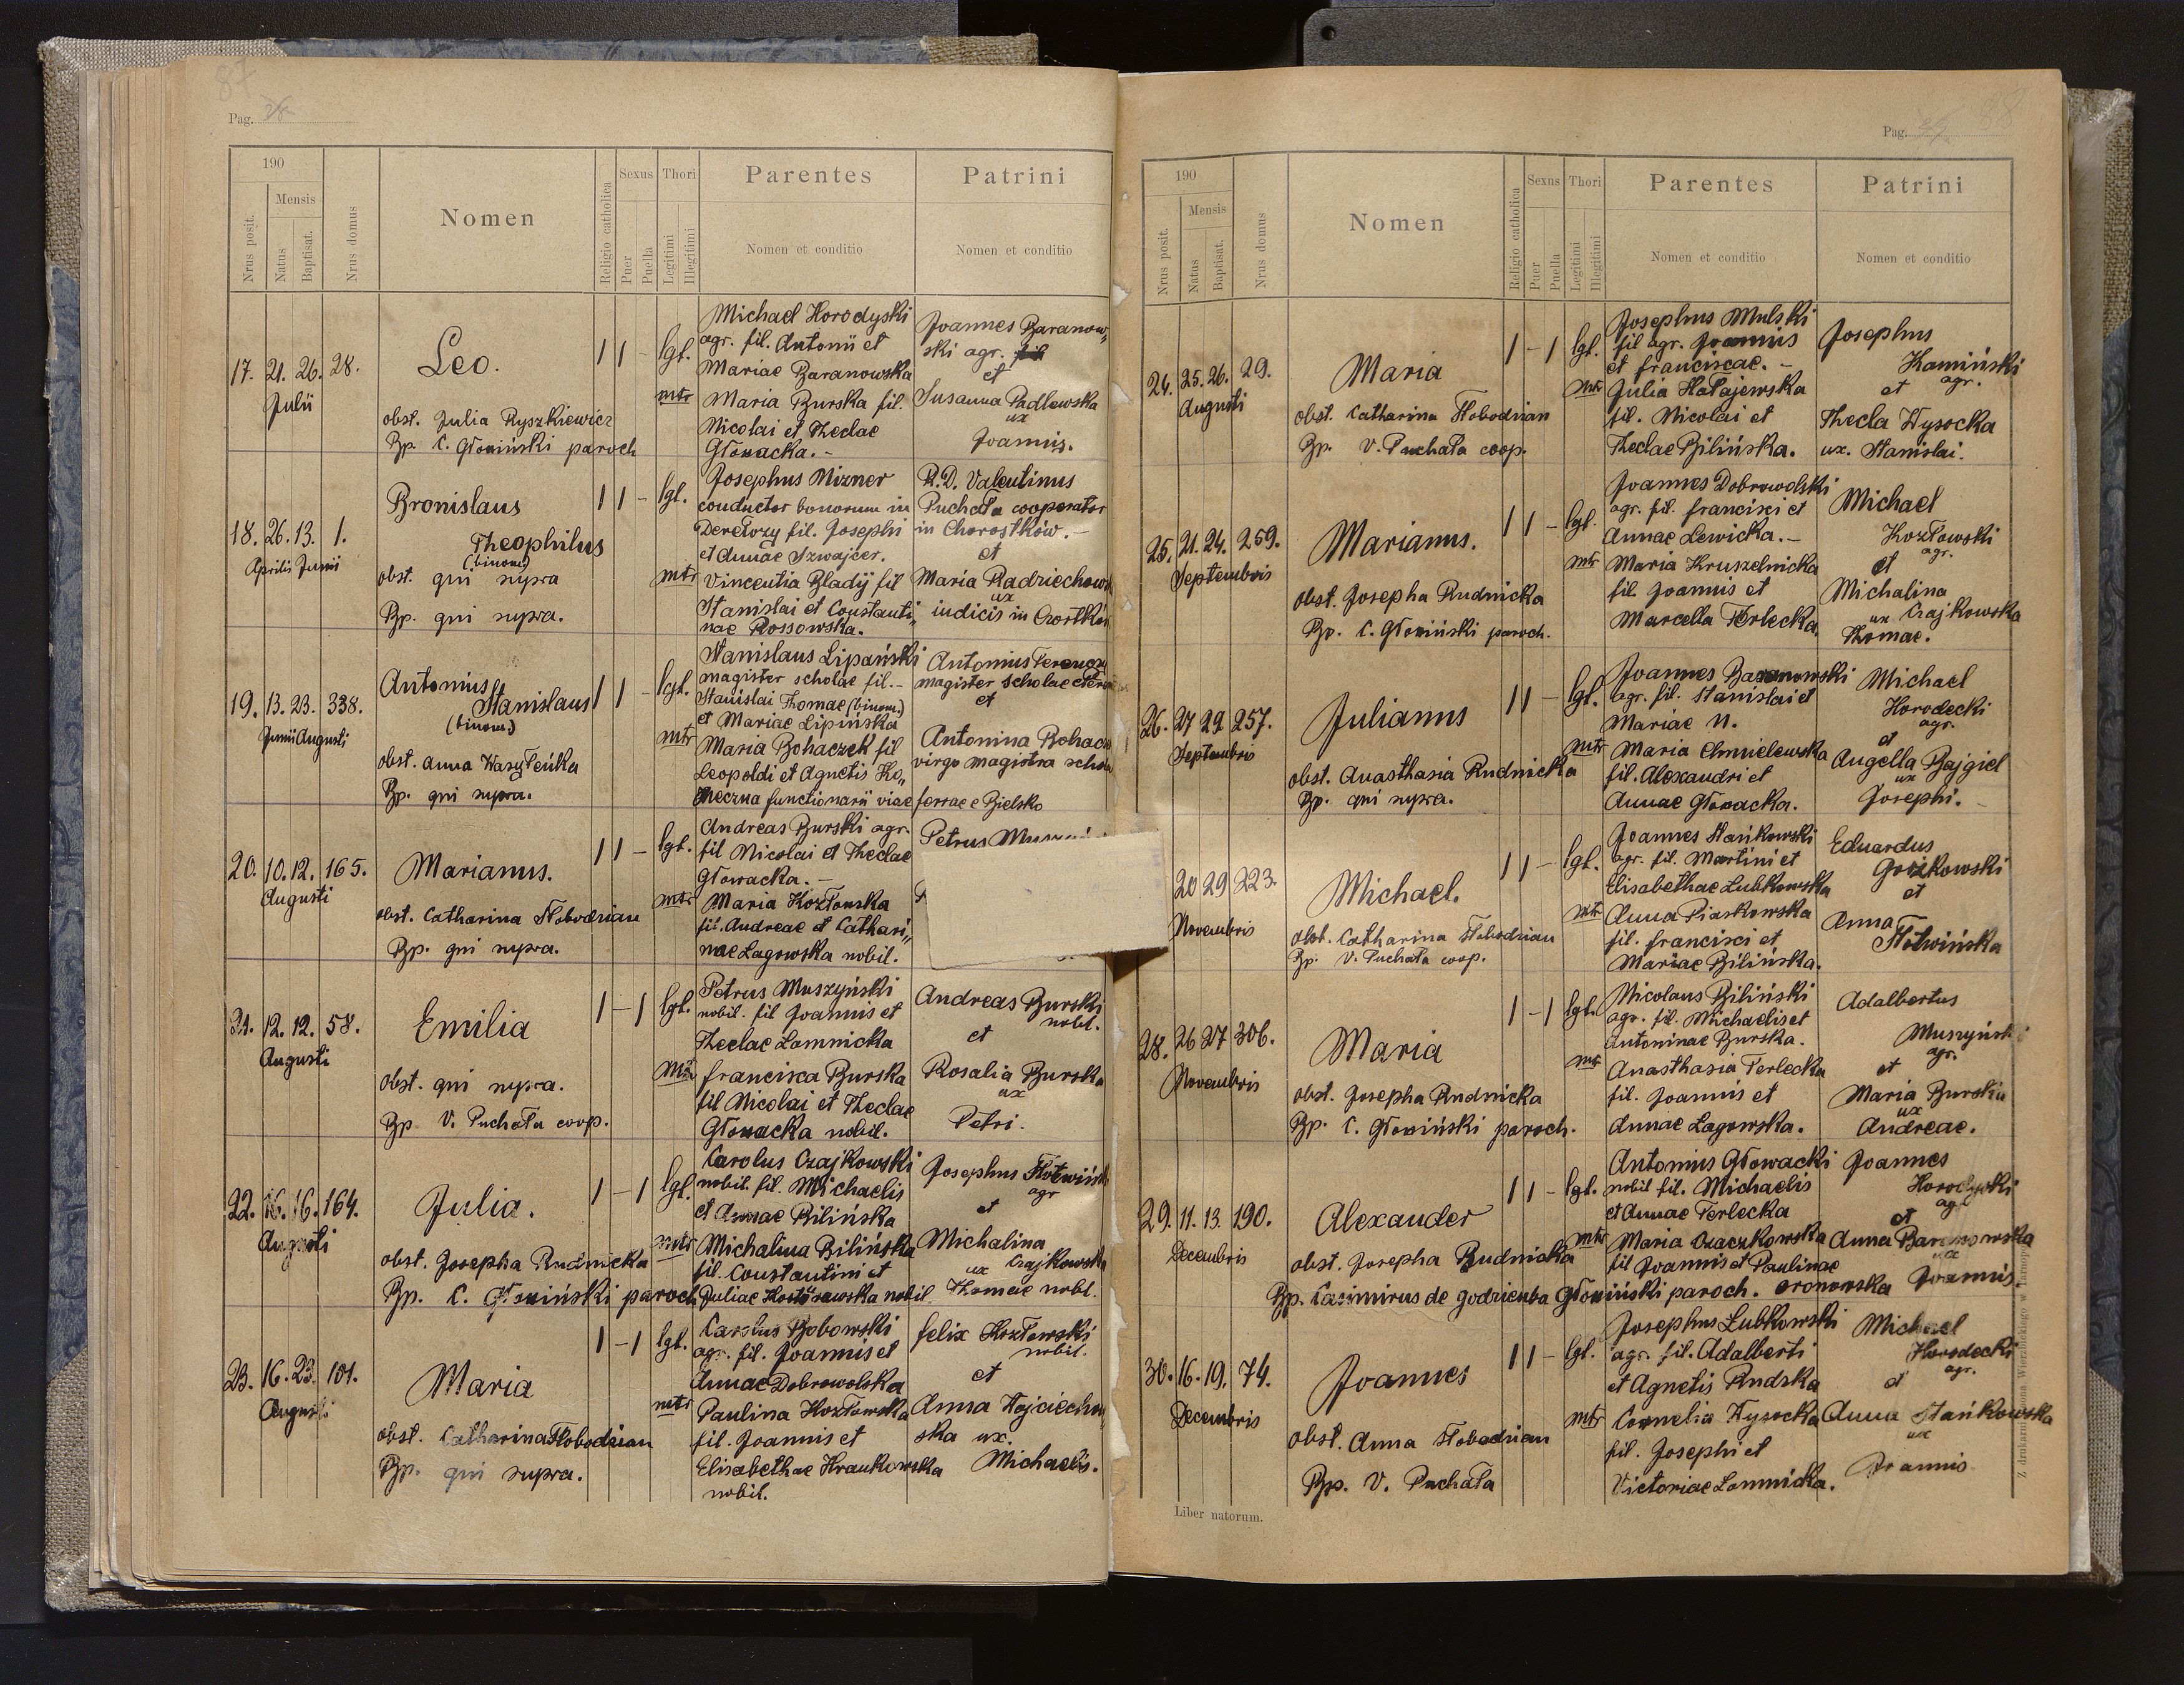 87
Pag.
190
Mensis
Nrus posit.
Natus
Baptisat.
Nrus domus
Nomen
Religio catholica
Sexus
Puer
Puella
Thori
Legitimi
Illegitimi
Parentes
Nomen et conditio
Patrini
Nomen et conditio
17. 21. 26. 28.
Julii
Leo.
obst. Julia Ryszkiewicz
Bp. C. Głowiński paroch
1 1 - lgt.
Michael Horodyski
agr. fil. Antonii et
Mariae Baranowska
mtr Maria Burska fil.
Nicolai et Theclae
Głowacka. -
Joannes Baranow„
ski agr.
et
Susanna Padlewska
ux
Joannis.
18. 26. 13. 1.
Aprilis Junii
Bronislaus
Theophilus
(binom)
obst. qui supra
Bp. qui supra.
1 1 - lgt.
Josephus Mizner
conductor bonorum in
Peretorzy fil. Josephi
et Annae Szwajcer.
mtr Vincentia Bladÿ fil
Stanislai et Constanti„
nae Rossowska.
R.D. Valentinus
Puchała cooperator
in Chorostków. -
et
Maria Radziechows
ux
iudicis in Czortków
19. 13. 23. 338.
Junii Augusti
Antonius
Stanislaus
(binom)
obst. Anna Wasyłeńka
Bp. qui supra.
1 1 - lgt.
Stanislaus Lipański
magister scholae fil. -
Stanislai Thomae (binom.)
et Mariae Lipińska
mtr Maria Bohaczek fil
Leopoldi et Agnetis Ko„
neczna functionarii viae ferrae e Bielsko
Antonius
magister scholae
et
Antonina Bohacz
virgo magistra schol
20. 10. 12. 165.
Augusti
Marianus.
obst. Catharina Słobodzian
Bp. qui supra.
1 1 - lgt.
Andreas Burski agr.
fil Nicolai et Theclae
Głowacka. -
mtr Maria Kozłowska
fil. Andreae et Cathari„
nae Lagowska nobil.
Petrus
21. 12. 12. 58.
Augusti
Emilia
obst. qui supra.
Bp V. Puchała coop.
1 - 1 lgt.
Petrus Muszyński
nobil. fil Joannis et
Theclae Lomnicka
mtr Francisca Burska
fil Nicolai et Theclae
Głowacka nobil.
Andreas Burski
nobil.
et
Rosalia Burska
ux
Petri.
22. 16. 16. 164.
Augusti
Julia.
obst. Josepha Rudnicka
Bp. C. Głowiński paroch
1 - 1 lgt.
Carolus Czajkowski
nobil. fil. Michaelis
et Annae Bilińska
mtr Michalina Bilińska
fil. Constantini et
Juliae nobil
Josephus Słotwińsk
agr
et
Michalina
ux Czajkowska
Thomae nobl.
23. 16. 23. 101.
Augusti
Maria
obst. Catharina Słobodzian
Bp. qui supra.
1 - 1 lgt.
Carolus Bobowski
agr. fil. Joannis et
Annae Dobrowolska
mtr Paulina Kozłowska
fil. Joannis et
Elisabethae Hrankowska
nobil.
Felix Kozłowski
nobil.
et
Anna Wojciechow
ska ux.
Michaelis.
88
Pag.
190
Mensis
Nrus posit.
Natus
Baptisat.
Nrus domus
Nomen
Religio catholica
Sexus
Puer
Puella
Thori
Legitimi
Illegitimi
Parentes
Nomen et conditio
Patrini
Nomen et conditio
24. 25. 26. 29.
Augusti
Maria
obst. Catharina Słobodzian
Bp. V. Puchała coop.
1 - 1 lgt.
Josephus Mulski
fil agr. Joannis
et Franciscae. -
mtr Julia Hałajewska
fil. Nicolai et
Theclae Bilińska.
Josephus
Kamiński
agr.
et
Thecla Wysocka
ux. Stanislai.
25. 21. 24. 259.
Septembris
Marianus.
obst. Josepha Rudnicka
Bp. C. Głowiński paroch.
1 1 - lgt.
Joannes Dobrowolski
agr. fil. Francisci et
Annae Lewicka. -
mtr Maria Kruszelnicka
fil. Joannis et
Marcella Terlecka
Michael
Kozłowski
agr.
et
Michalina
ux Czajkowska
Thomae.
26. 27 29 257.
Septembris
Julianus
obst. Anasthasia Rudnicka
Bp. qui supra.
1 1 - lgt.
Joannes Baranowski
agr. fil. Stanislai et
Mariae N.
mtr Maria Chmielewska
fil. Alexandri et
Annae Głowacka.
Michael
Horodecki
agr.
et
Angella Bajgiel
ux
Josephi. -
20 29 223.
Novembris
Michael.
obst. Catharina Słobodzian
Bp. V. Puchała coop.
1 1 - lgt.
Joannes Stańkowski
agr. fil. Martini et
Elisabethae Lubkowska
mtr Anna Piaskowska
fil. Francisci et
Mariae Bilińska.
Eduardus
Gożkowski
et
Anna
Słotwińska
28. 26 27 306.
Novembris
Maria
obst. Josepha Rudnicka
Bp. C. Głowiński paroch.
1 - 1 lgt.
Nicolaus Biliński
agr. fil. Michaelis et
Antoninae Burska.
mtr Anasthasia Terlecka
fil. Joannis et
Annae Lagowska.
Adalbertus
Muszyński
agr.
et
Maria Burska
ux
Andreae.
29. 11. 13. 190.
Decembris
Alexander
obst. Josepha Rudnicka
Bp. Casimirus de Godziemba Głowiński paroch.
1 1 - lgt.
Antonius Głowacki
nobil fil. Michaelis
et Annae Terlecka
mtr Maria Czaczkowska
fil Joannis et Paulinae
Joannes
Horodyski
agr
et
Anna Baranowska
ux
Joannis.
30. 16. 19. 74.
Decembris
Joannes
obst. Anna Słobodzian
Bp. V. Puchała
1 1 - lgt.
Josephus Lubkowski
agr. fil. Adalberti
et Agnetis Rudska
mtr Cornelia Wysocka
fil. Josephi et
Victoriae Lomnicka.
Michael
Horodecki
agr.
et
Anna Stańkowska
ux
Joannis
Liber natorum.